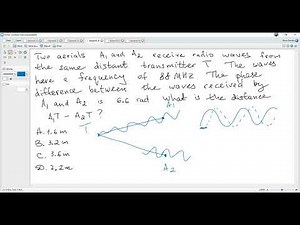 Two aerials A1 and A2 receive radio waves from
the same distant transmitter T. The waves
have a frequency of 84 MHz The phase
difference between the waves received by
A1 and A2 is 6.6 rad what is the distance
A1T - A2T ?
A. 1.6 m
B. 3.2 m
C. 3.6 m
D. 2,2 m
T
A1
A2